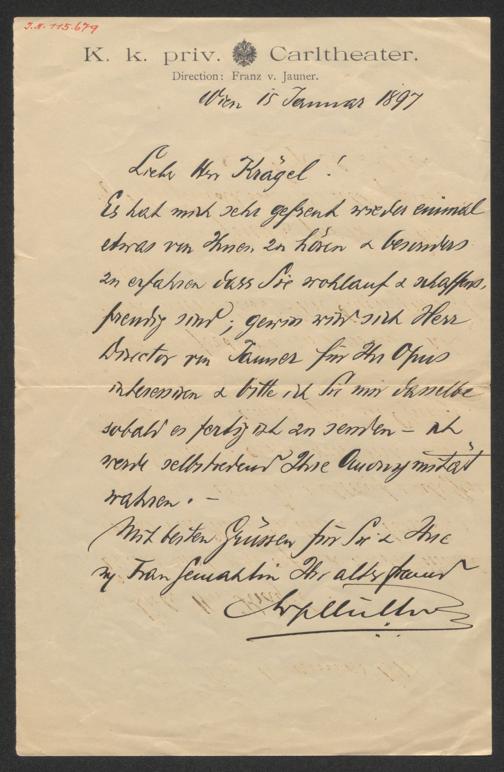 J.N. 115.679
K. k. priv. Carltheater.
Direction: Franz v. Jauner.
Wien 15 Januar 1897
Lieber Herr Krägel!
Es hat mich sehr gefreut wieder einmal
etwas von Ihnen zu hören & besonders
zu erfahren dass Sie wohlauf & schaffens,
freudig sind; gewiss wird sich Herr
Director von Jauner für Ihr Opus
interessiren & bitte ich Sie mir dasselbe
sobald es fertig ist zu senden – ich
werde selbstredend Ihre Anonymität
wahren. –
Mit besten Grüssen für Sie & Ihre
Frau Gemahlin Ihr alter Freund
Müller